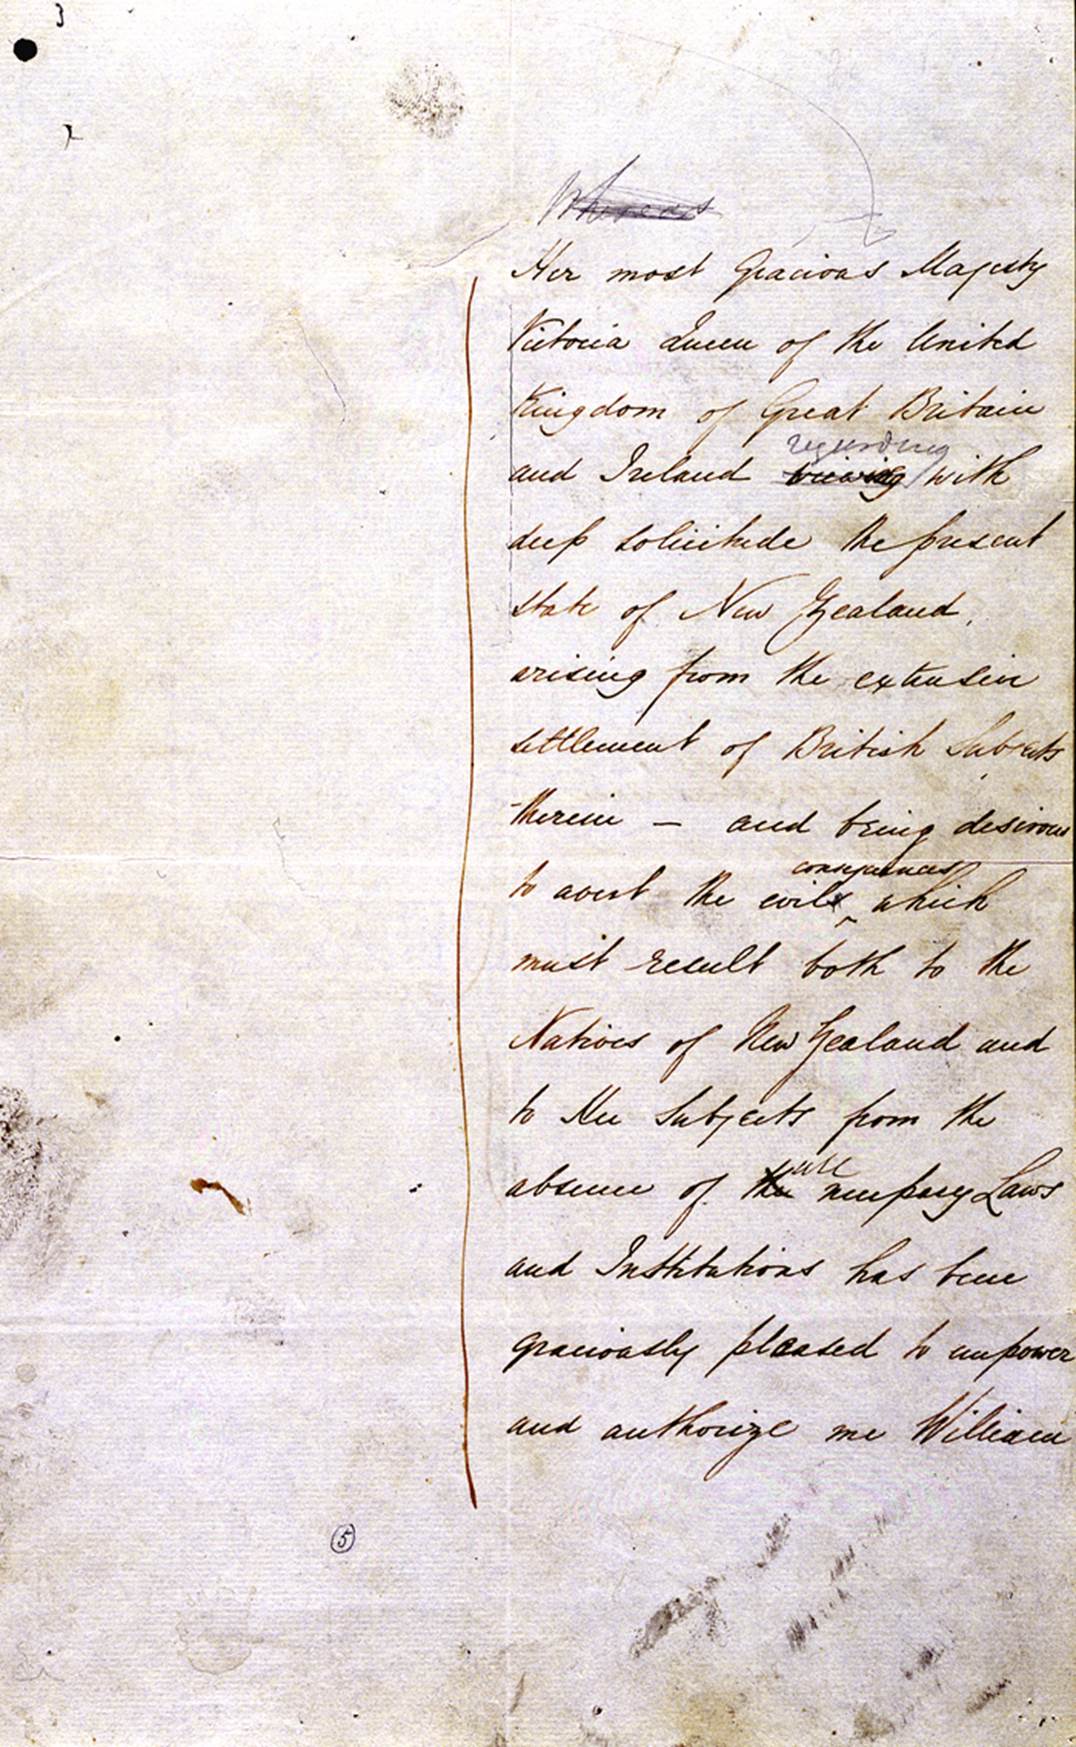 3
Whereas
Her most Gracious Majesty
Victoria Queen of the United
Kingdom of Great Britain
regarding
and Ireland viewing with
deep solicitude the present
state of New Zealand,
arising from the extensive
settlement of British Subjects
therein — and being desirous
consequences
to avert the evils which
must result both to the
Natives of New Zealand and
to Her Subjects from the
absence of the necessary Laws
and Institutions has been
graciously pleased to empower
and authorize me William
5